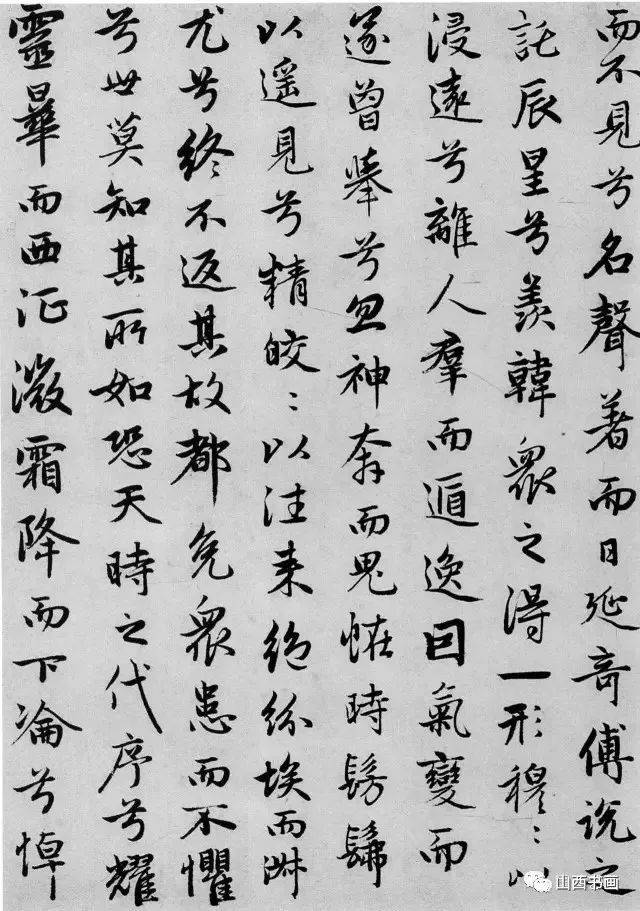 而不見兮名聲著而日延奇傅說之
託辰星兮羨韓眾之得一形穆〻以
浸遠兮離人羣而遁逸因氣變而
遂曾舉兮忽神奔而鬼怪時髣髴
以遥見兮精皎〻以往来絶紛埃而淑
尤兮終不返其故都免眾患而不懼
兮世莫知其所如恐天時之代序兮耀
靈曅而西征微霜降而下淪兮悼
山西书画